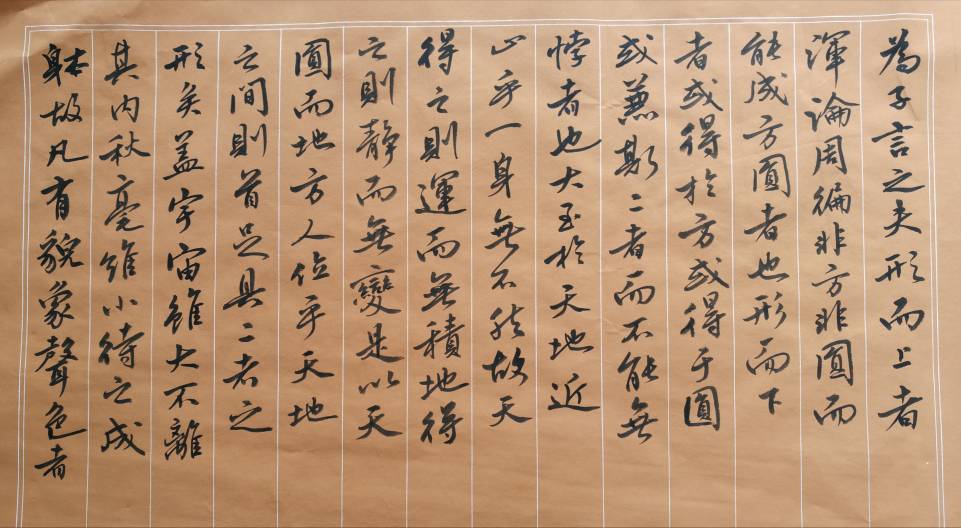 為子言之夫形而上者
渾淪周徧非方非圓而
能成方圓者也形而下
者或得於方或得于圓
或兼斯二者而不能無
悖者也大至於天地近
止乎一身無不然故天
得之則運而無積地得
之則靜而無變是以天
圓而地方人位乎天地
之間則首足具二者之
形矣蓋宇宙雖大不離
其內秋毫雖小待之成
躰故凡有貌象聲色者